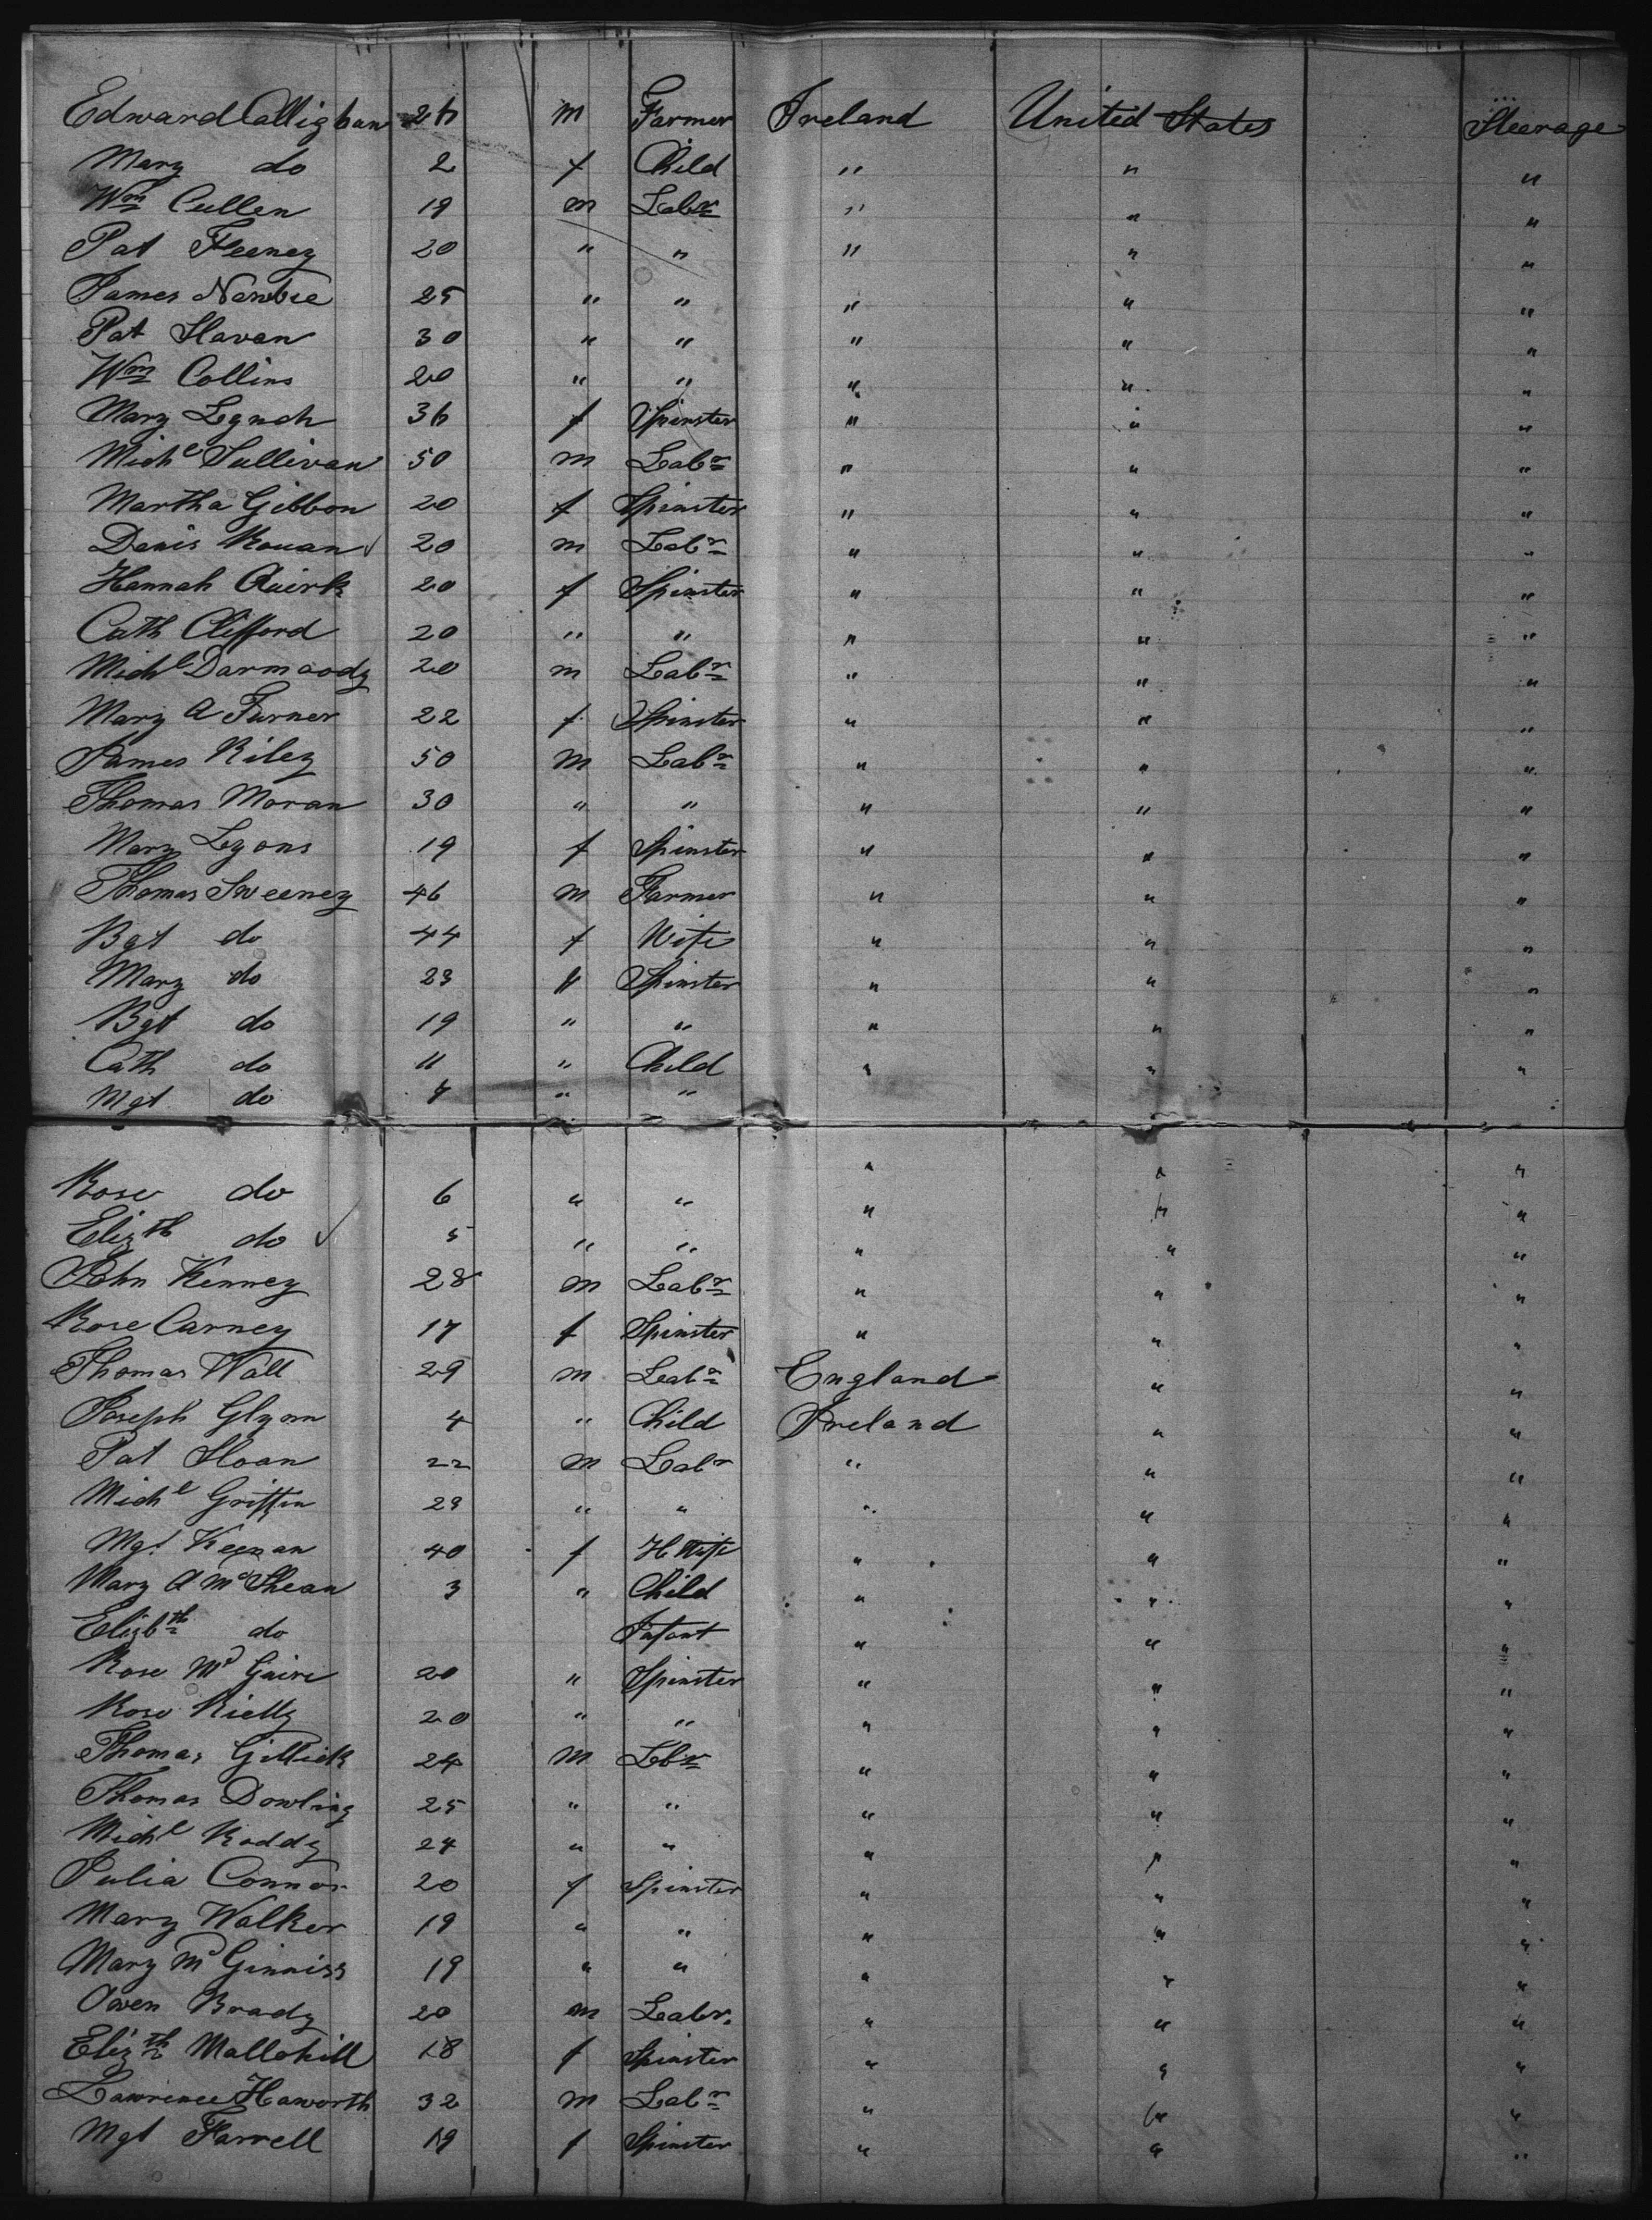 Edward Callighan 26 m Farmer Ireland United States Steerage
Mary do 2 f Child " " "
Wm Cullen 19 m Labr " " "
Pat Feeney 20 " " " " "
James 25 " " " " "
Pat Slavan 30 " " " " "
Wm Collins 20 " " " " "
Mary Lynch 36 f Spinster " " "
Michl Sullivan 50 m Labr " " "
Martha Gibbon 20 f Spinster " " "
Denis Rouan 20 m Labr " " "
Hannah Quirk 20 f Spinster " " "
Cath Clifford 20 " " " " "
Michl Darmoody 20 m Labr " " "
Mary A Turner 22 f Spinster " " "
James Riley 50 m Labr " " "
Thomas Moran 30 " " " " "
Mary Lyons 19 f Spinster " " "
Thomas Sweeney 46 m Farmer " " "
Bgt do 44 f Wife " " "
Mary do 23 " Spinster " " "
Bgt do 19 " " " " "
Cath do 11 " Child " " "
Mgt do 7 " " " " "
Rose do 6 " " " " "
Elizth do ✓ 5 " " " " "
John Kenney 28 m Labr " " "
Rose Carney 17 f Spinster " " "
Thomas Wall 29 m Labr England " "
Joseph Glynn 4 " Child Ireland " "
Pat Sloan 22 m Labr " " "
Michl Griffin 29 " " " " "
Mgt Keenan 40 f H Wife " " "
Mary A McShean 3 " Child " " "
Elizbth do Infant " " "
Rose McGuire 20 " Spinster " " "
Rose Rielly 20 " " " " "
Thomas Gillick 24 m Lbr " " "
Thomas Dowling 25 " " " " "
Michl Roddy 24 " " " " "
Julia Connor 20 f Spinster " " "
Mary Walker 19 " " " " "
Mary McGinniss 19 " " " " "
Owen Brady 20 m Labr. " " "
Elizth Mallohill 18 f Spinster " " "
Lawrence Haworth 32 m Labr " " "
Mgt Farrell 19 f Spinster " " "